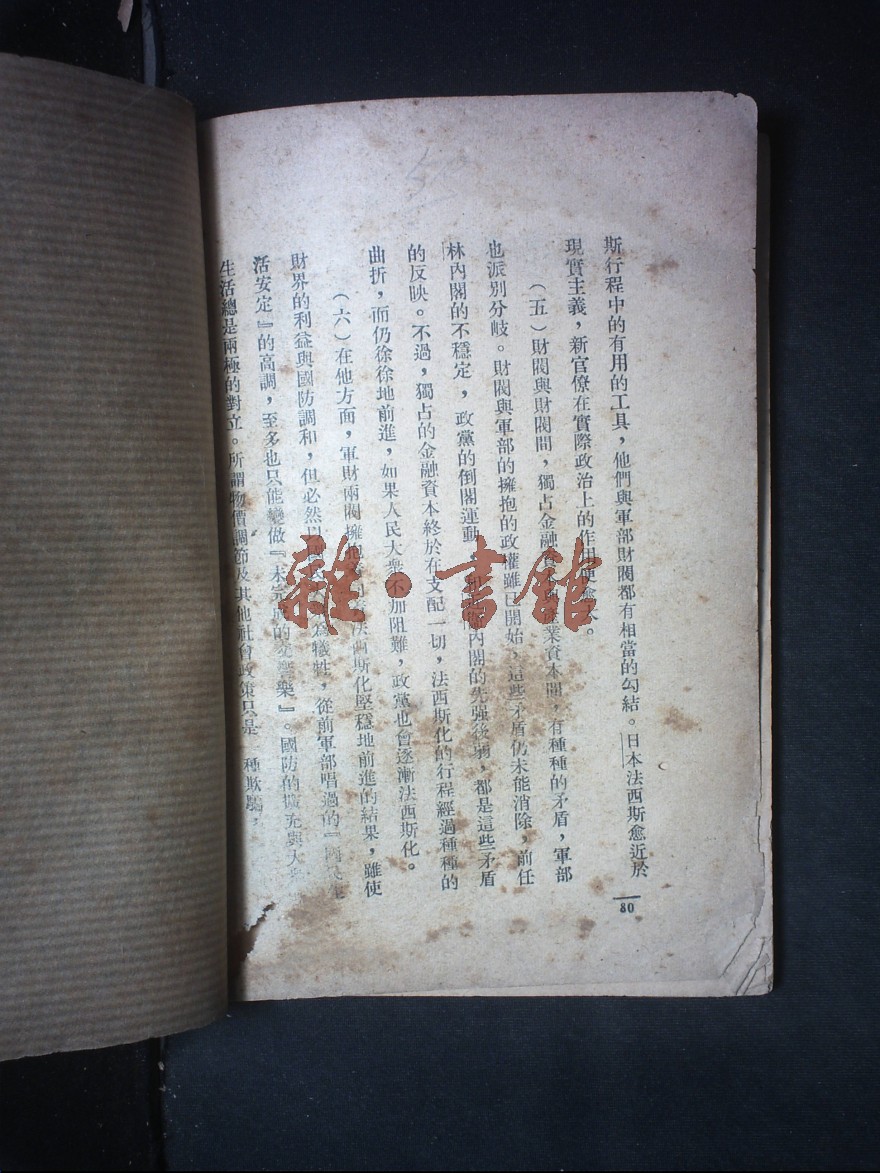 斯行程中的有用的工具，他們與軍部財閥都有相當的勾結。日本法西斯愈近於
現實主義，新官僚在實際政治上的作用便愈大。
（五）財閥與財閥間，獨占金融資本與產業資本間，有種種的矛盾，軍部
也派別分歧。財閥與軍部的擁抱的政權雖已開始，這些矛盾仍未能消除，前任
林內閣的不穩定，政黨的倒閣運動，內閣的先强後弱，都是這些矛盾
的反映。不過，獨占的金融資本終於在支配一切，法西斯化的行程經過種種的
曲折，而仍徐徐地前進，如果人民大衆不加阻難，政黨也會逐漸法西斯化。
（六）在他方面，軍財兩閥擁抱法西斯化堅穩地前進的結果，雖使
財界的利益與國防調和，但必然以犧牲，從前軍部唱過的『國民生
活安定』的高調，至多也只能變做『未完成的交響樂』。國防的擴充與人民
生活總是兩極的對立。所謂物價調節及其他社會政策只是一種欺騙，
80
雜·書館